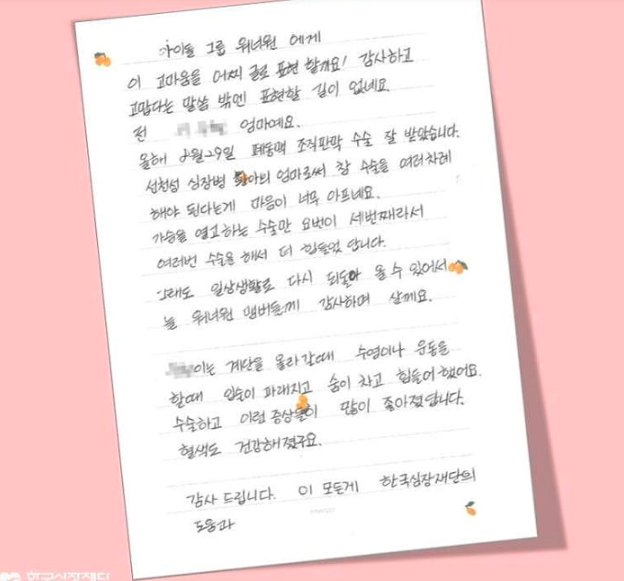 아이돌 그룹 워너원 에게
이 고마움을 어찌 글로 표현 할까요! 감사하고
고맙다는 말씀 밖엔 표현할 길이 없네요
전 엄마예요.
올해 2월29일 폐동맥 조직판막 수술 잘 받았습니다.
선천성 심장병 환아의 엄마로써 참 수술을 여러차례
해야 된다는게 마음이 너무 아프네요.
가슴을 열고하는 수술만 요번이 세번째라서
여러번 수술을 해서 더 힘들었답니다.
그래도 일상생활로 다시 되돌아 올 수 있어서
늘 워너원 멤버들께 감사하며 살께요.
이는 계단을 올라갈때 수영이나 운동을
할때 입술이 파래지고 숨이 차고 힘들어 했어요.
수술하고 이런 증상들이 많이 좋아졌답니다.
혈색도 건강해졌구요.
감사 드립니다. 이 모든게 한국심장재단의
도움과
한국심장재단